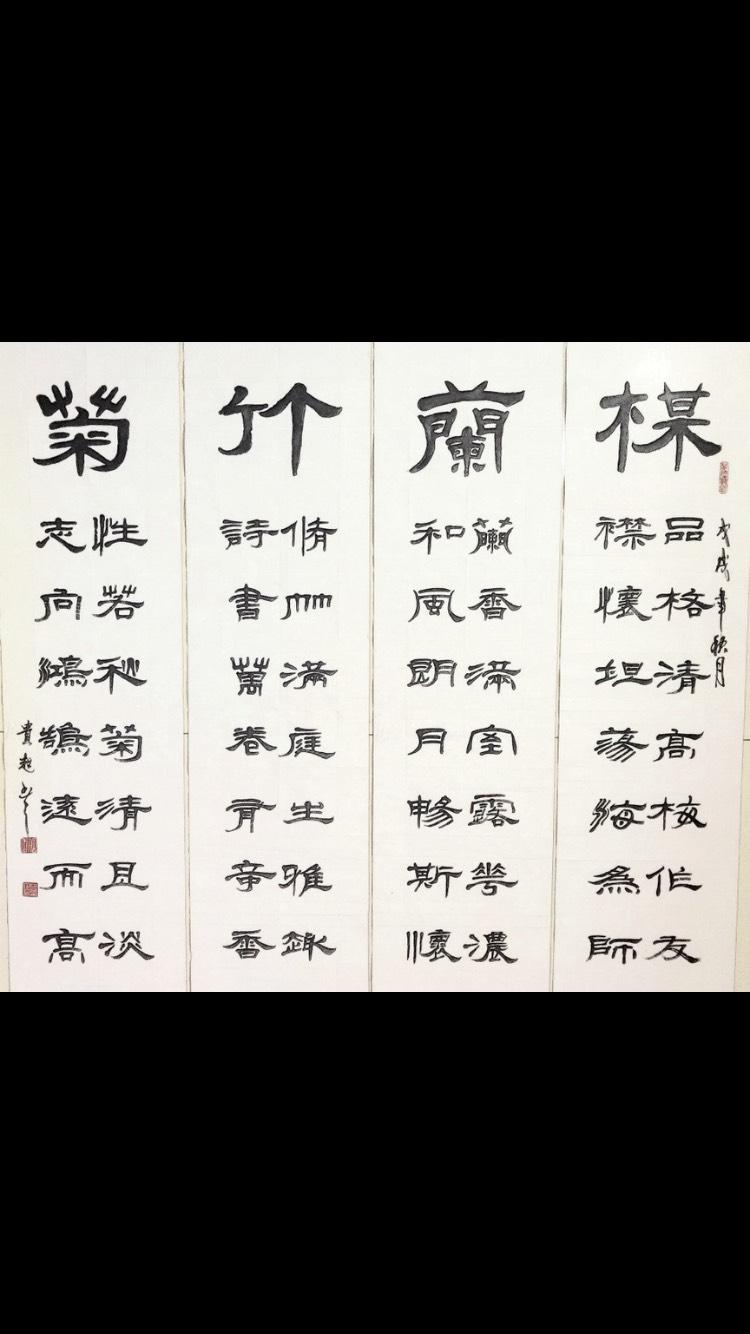 楳
戊戌年秋月
品格清高梅作友
襟懷坦蕩海為師
蘭
蘭香滿室露花濃
和風朗月暢斯懷
竹
脩竹滿庭生雅趣
詩書萬卷有奇香
菊
性若秋菊清且淡
志向鴻鵠遠而高